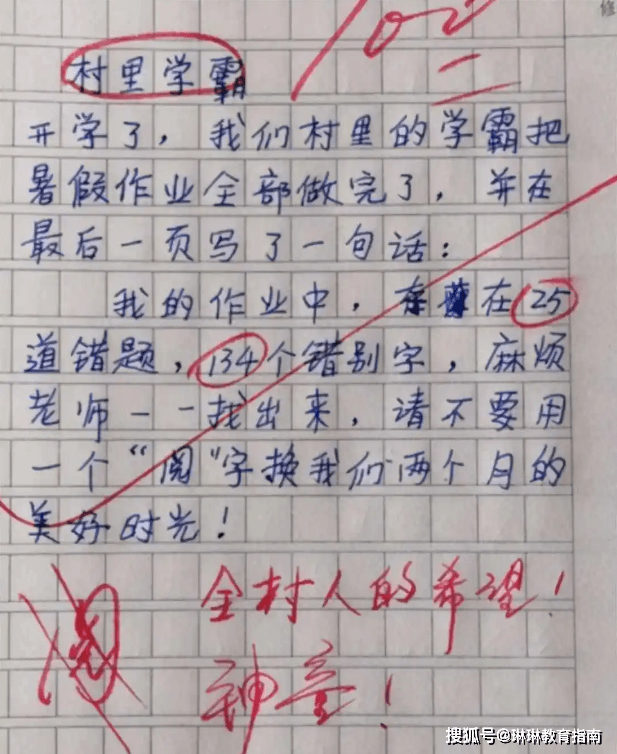 102
村里学霸
开学了，我们村里的学霸把
暑假作业全部做完了，并在
最后一页写了一句话：
我的作业中，存在25
道错题，134个错别字，麻烦
老师一一找出来，请不要用
一个“阅”字换我们两个月的
美好时光！
阅
全村人的希望！
神童！
搜狐号@琳琳教育指南